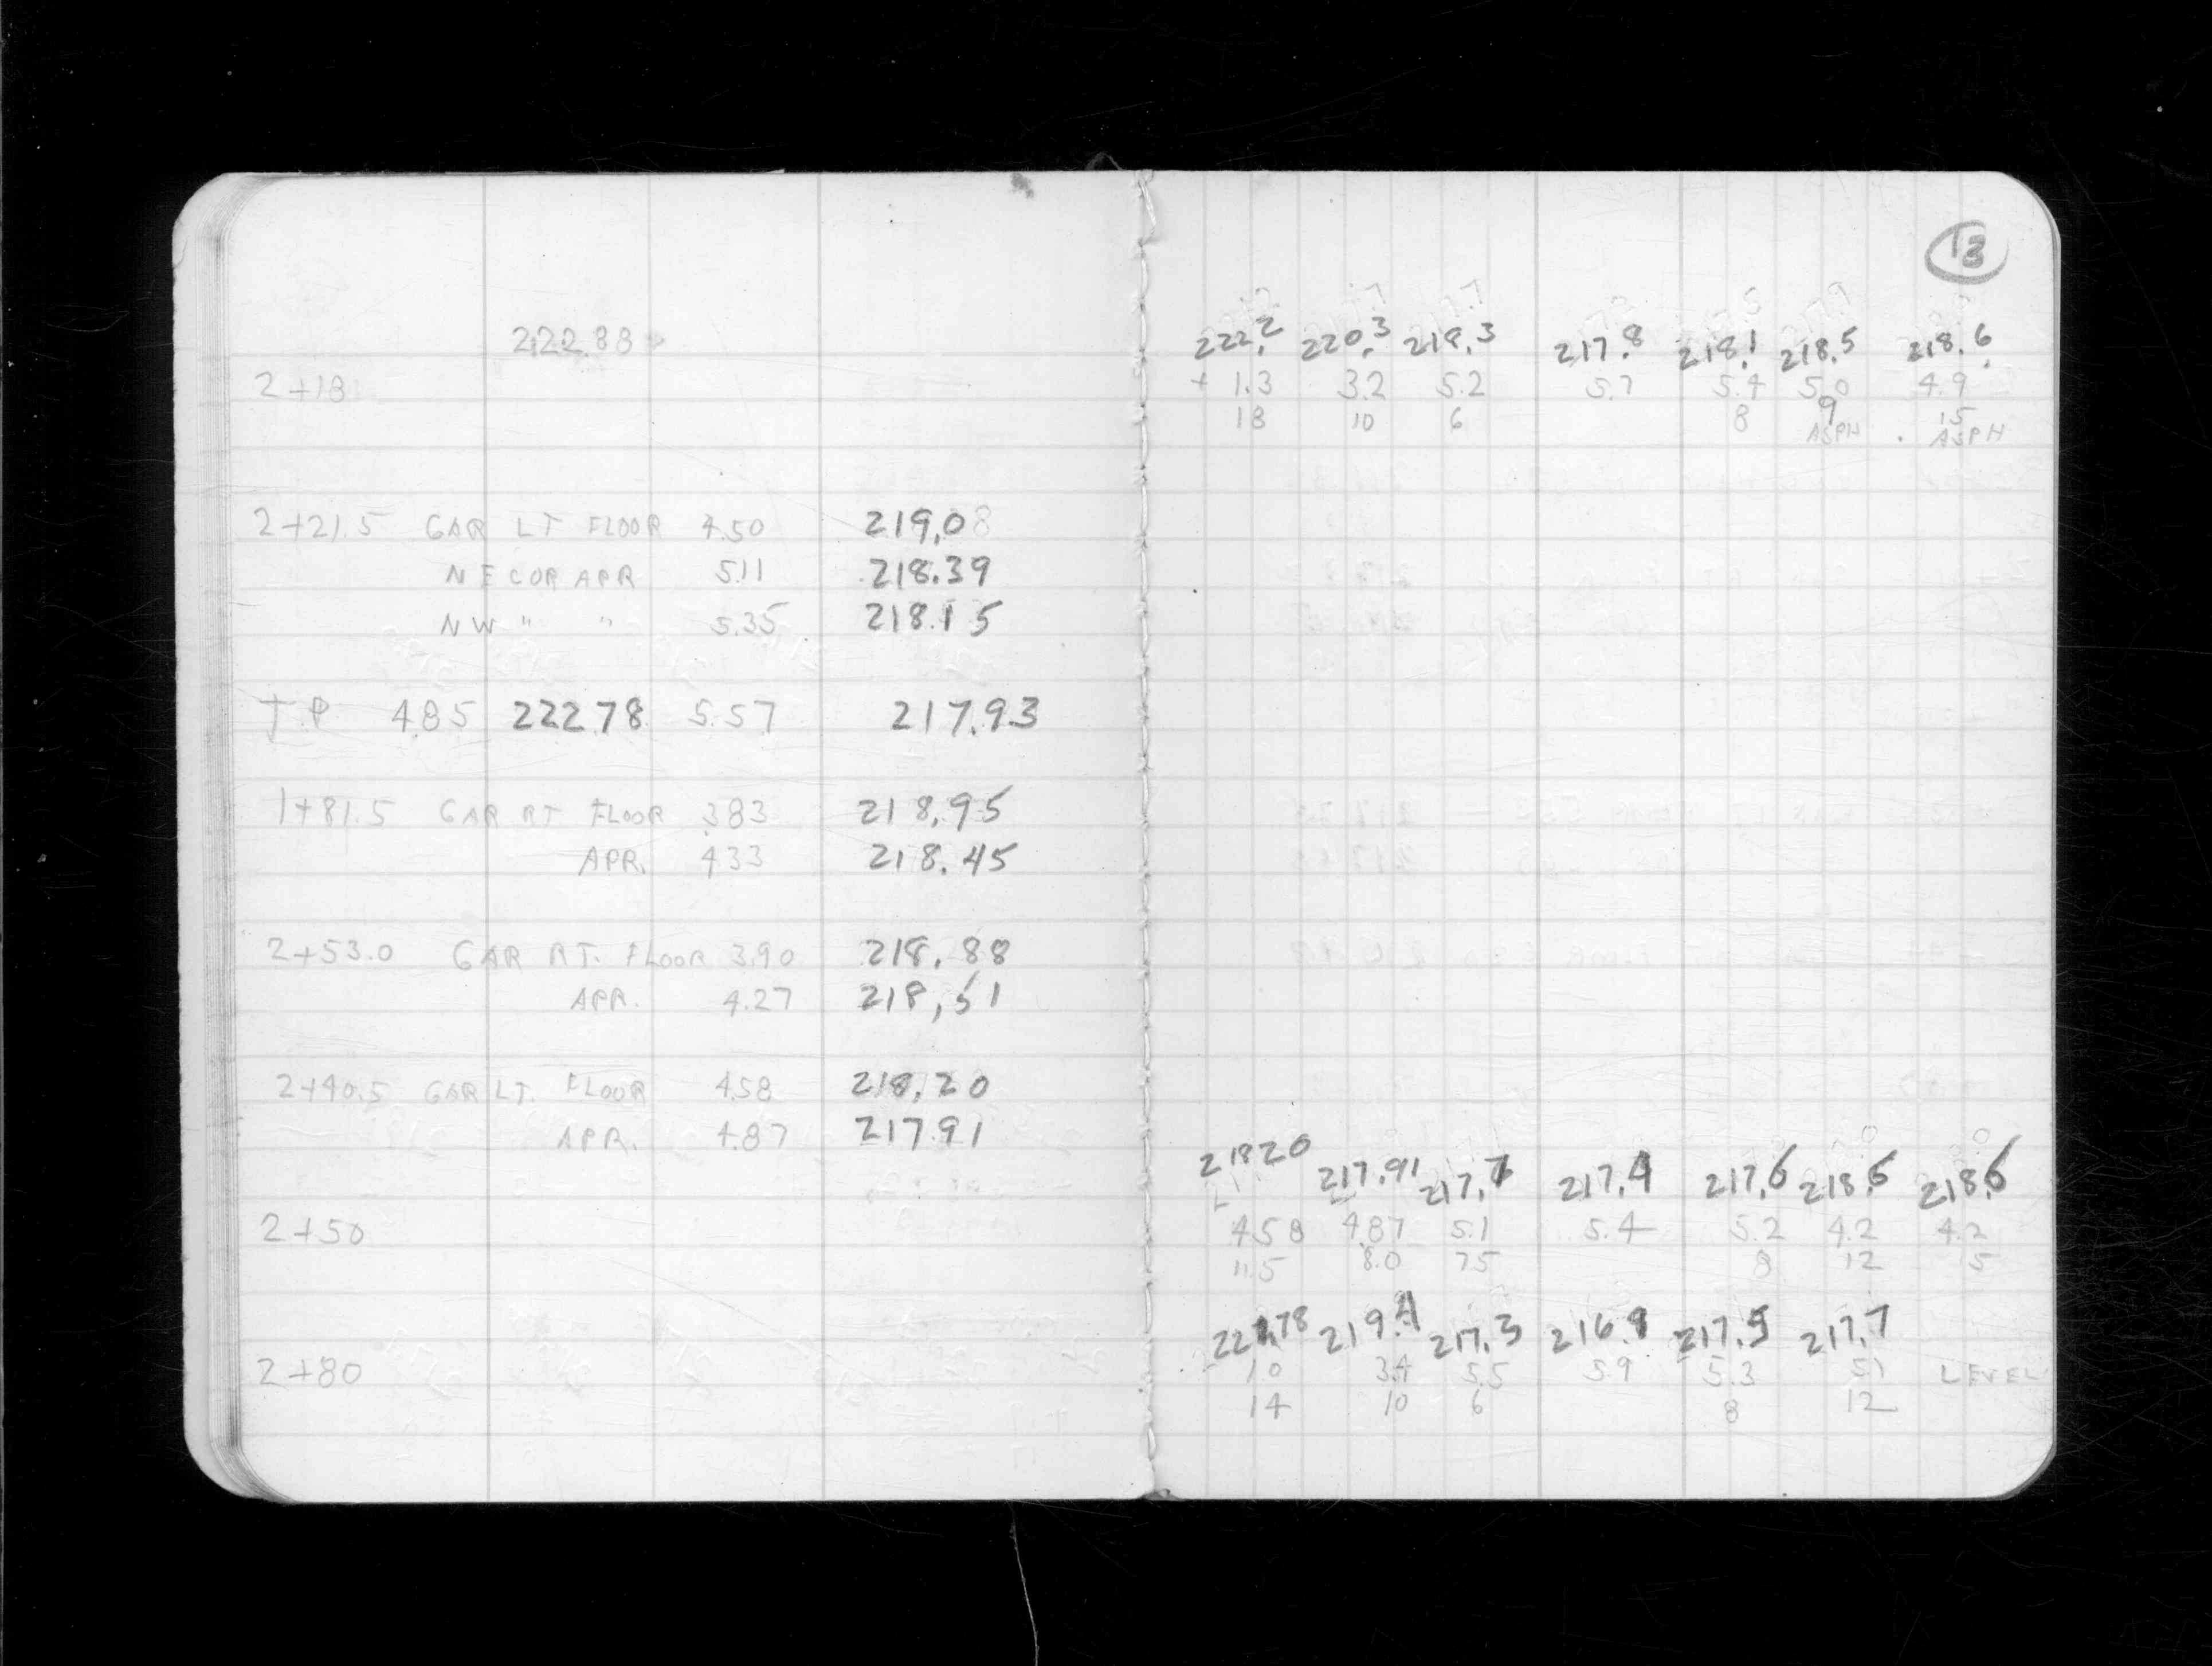 13
222.88
222.2 220.3 218.3 217.8 218.1 218.5 218.6
2+18 + 1.3 3.2 5.2 5.7 5.4 5.0 4.9
18 10 6 8 9 15
ASPH ASPH
2+21.5 GAR LT FLOOR 4.50 219.08
N E COR APR 5.11 218.39
NW " " 5.35 218.15
T.P 4.85 222.78 5.57 217.93
1+81.5 GAR RT FLOOR 3.83 218.95
APR. 4.33 218.45
2+53.0 GAR RT. FLOOR 3.90 218.88
APR. 4.27 218.51
2+40.5 GAR LT. FLOOR 4.58 218.20
APR. 4.87 217.91
218.20 217.91 217.7 217.4 217.6 218.6 218.6
2+50 4.58 4.87 5.1 5.4 5.2 4.2 4.2
11.5 8.0 7.5 8 12 15
219.4 217.3 216.9 217.5 217.7
2+80 1.0 3.4 5.5 5.9 5.3 5.1 LEVEL
14 10 6 8 12